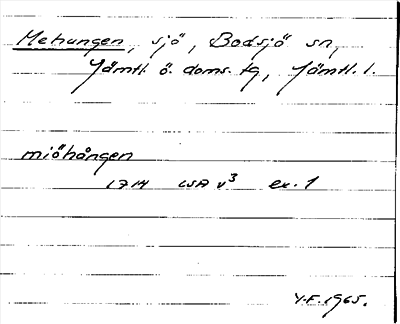 Mehungen, sjö, Bodsjö sn,
Jämtl. ö. doms. tg, Jämtl. l.
miöhången
1714 LSA v³ ex. 1
Y.F. 1965.